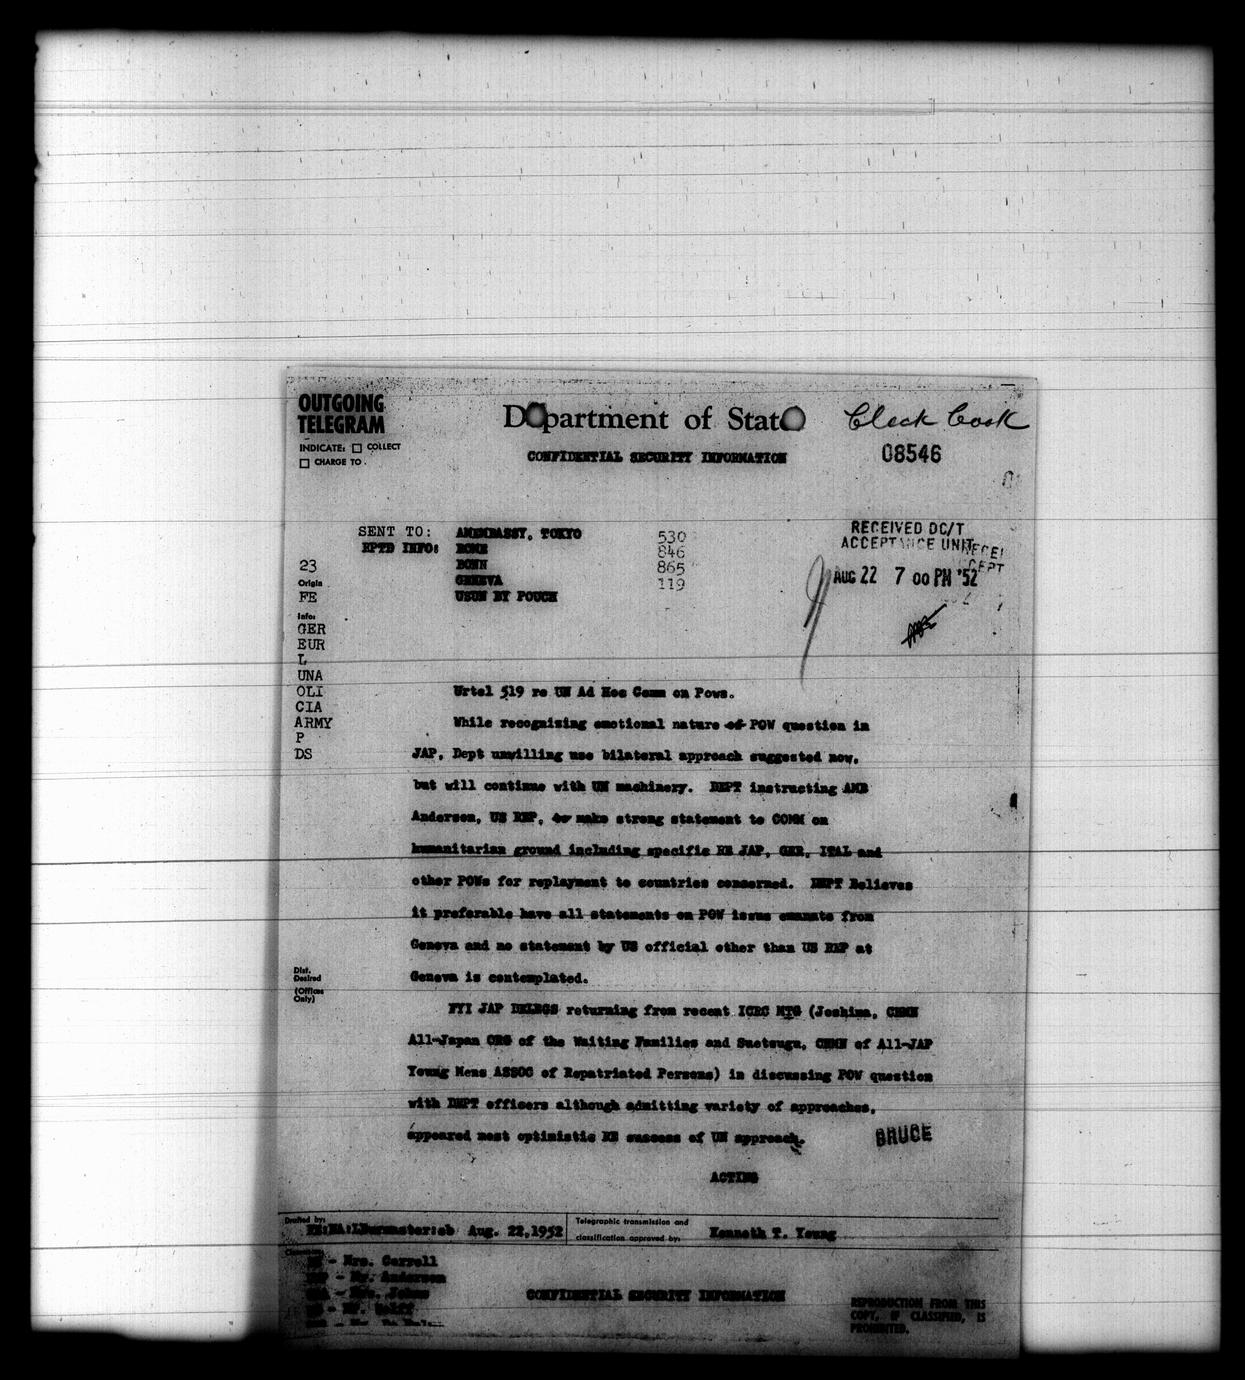 OUTGOING
TELEGRAM
INDICATE: ☐ COLLECT
☐ CHARGE TO
Department of State
CONFIDENTIAL SECURITY INFORMATION
Cleck Cook
08546
SENT TO: AMEMBASSY, TOKYO 530
RPTD INFO: ROME 846
BONN 865
GENEVA 119
USUN BY POUCH
RECEIVED DC/T
ACCEPTANCE UNIT
AUG 22 7 00 PM '52
23
Origin
FE
Info:
GER
EUR
L
UNA
OLI
CIA
ARMY
P
DS
Urtel 519 re UN Ad Hoc Comm on Pows.
While recognizing emotional nature of POW question in
JAP, Dept unwilling use bilateral approach suggested now,
but will continue with UN machinery. DEPT instructing AMB
Anderson, US REP, to make strong statement to COMM on
humanitarian ground including specific RE JAP, GER, ITAL and
other POWs for replayment to countries concerned. DEPT Believes
it preferable have all statements on POW issue emanate from
Geneva and no statement by US official other than US REP at
Geneva is contemplated.
Dist.
Desired
(Offices
Only)
FYI JAP DELEGS returning from recent ICRC MTG (Joshima, CHMN
All-Japan ORG of the Waiting Families and Suetsugu, CHMN of All-JAP
Young Mens ASSOC of Repatriated Persons) in discussing POW question
with DEPT officers although admitting variety of approaches,
appeared most optimistic RE success of UN approach.
BRUCE
ACTING
Drafted by:
Aug. 22, 1952
Telegraphic transmission and
classification approved by:
Kenneth T. Young
- Mrs. Carroll
- Mr. Anderson
- Mr. Wolff
CONFIDENTIAL SECURITY INFORMATION
REPRODUCTION FROM THIS
COPY, IF CLASSIFIED, IS
PROHIBITED.